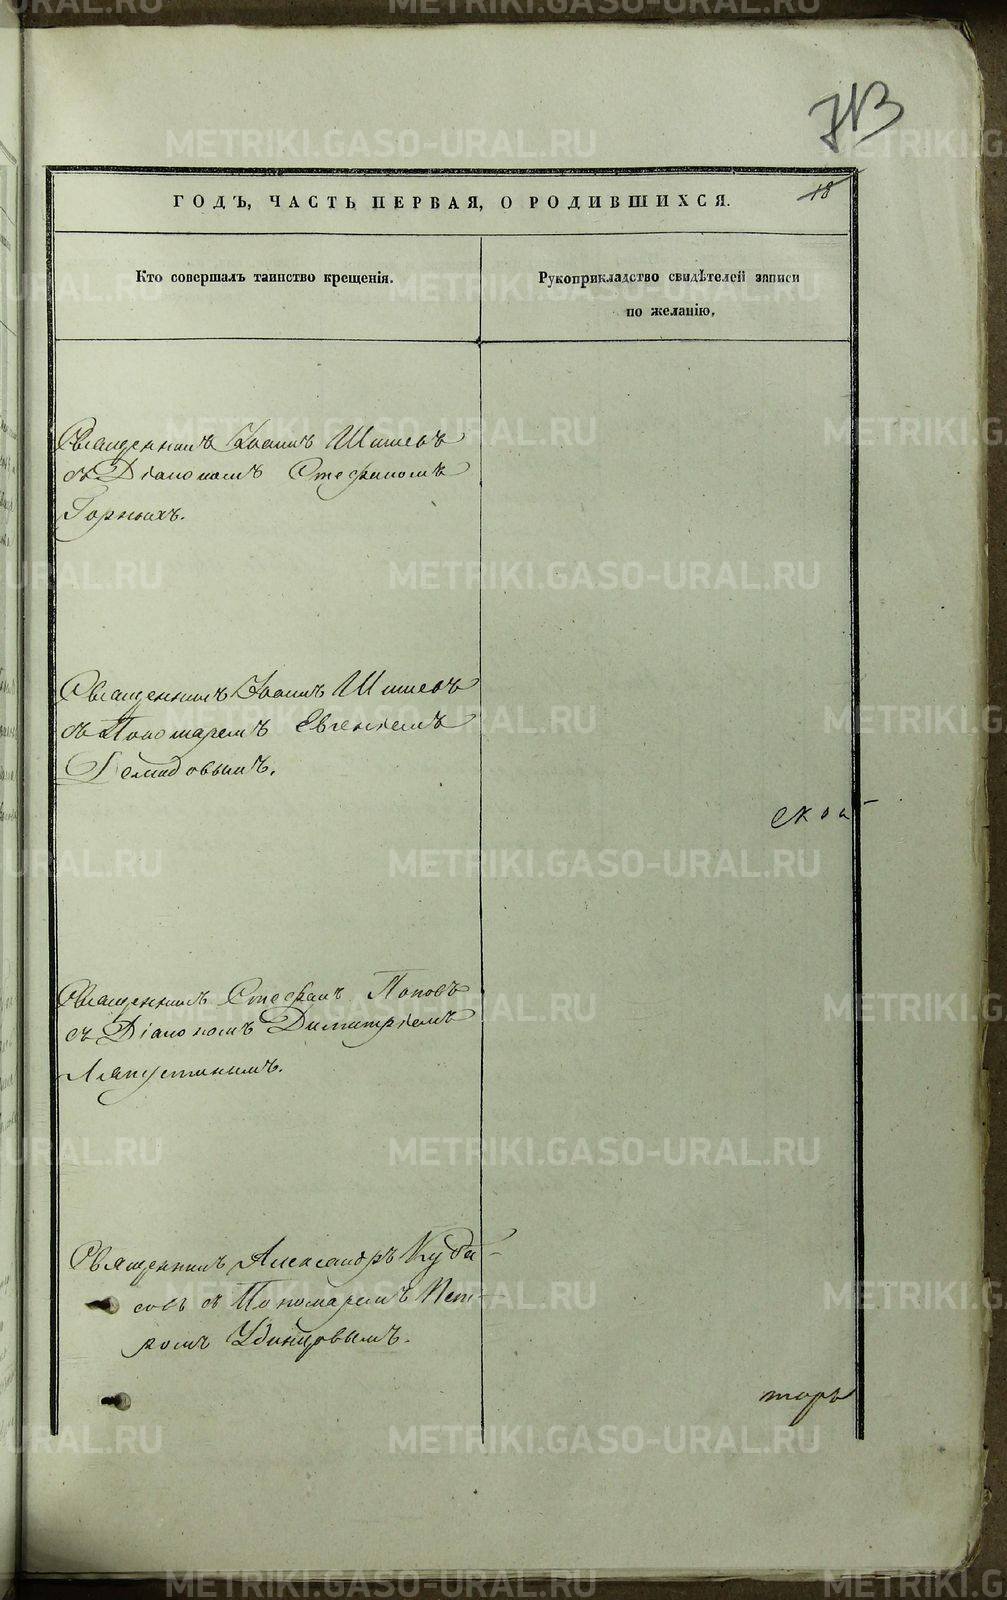 713
18
ГОДЪ, ЧАСТЬ ПЕРВАЯ, О РОДИВШИХСЯ.
Кто совершалъ таинство крещенія.
Рукоприкладство свидѣтелей записи
по желанію.
Священникъ Іоаннъ Шишевъ
съ Діакономъ Стефаномъ
Горныхъ.
Священникъ Іоаннъ Шишевъ
съ Пономаремъ Евгеніемъ
Демидовымъ.
ской
Священникъ Стефанъ Поповъ
съ Діакономъ Димитріемъ
Ляпустинымъ.
Священникъ Александръ Куба-
совъ съ Пономаремъ Пет-
ромъ Удинцовымъ.
торъ
METRIKI.GASO-URAL.RU